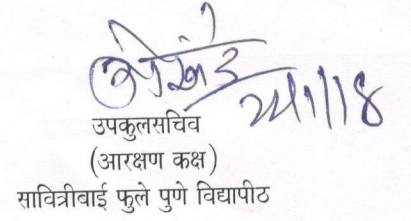 उपकुलसचिव
(आरक्षण कक्ष)
सावित्रीबाई फुले पुणे विद्यापीठ